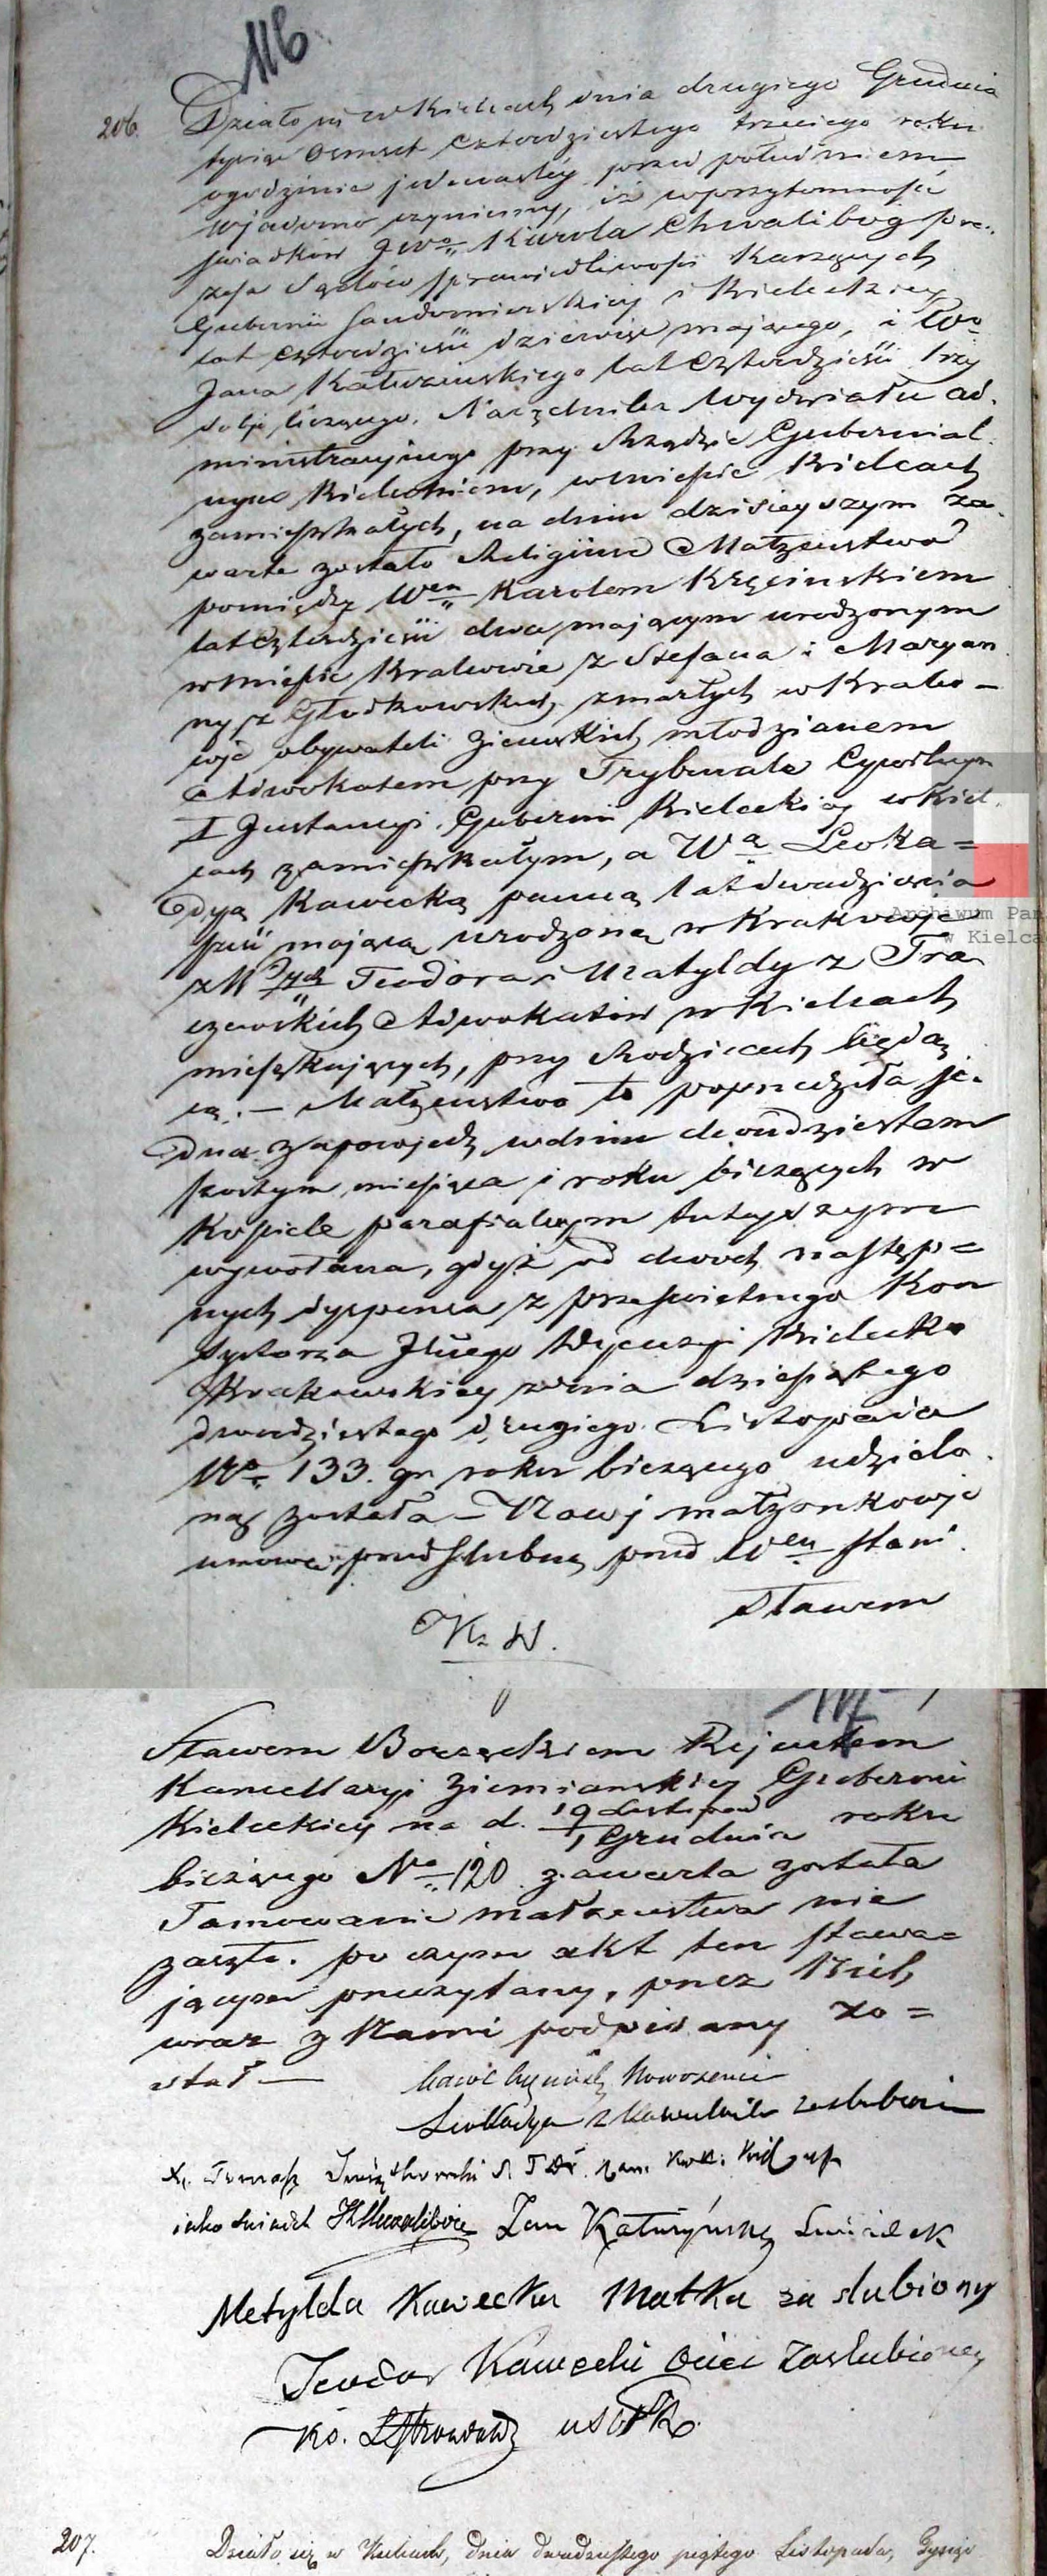 116
206. Działo się w Kielcach dnia drugiego Grudnia
tysiąc osmset czterdziestego trzeciego roku
o godzinie jedenastéy przed południem
wiadomo czyniemy, iż w przytomności
świadków JWo Karola Chwalibog Pre-
zesa Sądów Sprawiedliwości Karzących
Gubernii Sandomierskiey i Kieleckiey
lat czterdzieści dziewięć mającego, i Wo
Jana Kałuzinskiego lat czterdzieści trzy
sobie liczącego, Naczelnika Wydziału Ad-
ministracyinego przy Rządzie Gubernial-
nym Kieleckiem, w mieście Kielcach
zamieszkałych, na dniu dzisieyszym za-
warte zostało Religiine Małżeństwo
pomiędzy Wem Karolem
lat czterdzieści dwa mającym urodzonym
w mieście Krakowie z Stefana i Maryan
ny z Głodkowskich zmarłych w Krako-
wie obywateli Ziemskich młodzianem
Adwokatem przy Trybunale Cywilnym
I Instancyi Gubernii Kieleckiey w Kiel-
cach zamieszkałym, a Wą Leoka=
dyą Kawecką panną lat dwadzieścia
sześć mającą urodzoną w Krakowie
z Teodora i Matyldy z Tra
czewskich Adwokatów w Kielcach
mieszkających, przy Rodzicach będą
cą. — Małżeństwo to poprzedziła je-
dna zapowiedź w dniu dwudziestem
szostym miesiąca i roku bieżących w
Kościele parafialnym tuteyszym
wywołana, gdyż od dwoch następ=
nych dyspensa z prześwietnego Kon
systorza Jlnego Dyecezyi Kielecko
Krakowskiey z dnia dziesiątego
dwudziestego drugiego Listopada
No 133. gn roku bieżącego udzielo
ną została — Nowi małżonkowie
umowę przedślubną przed Wem Stani
sławem
Archiwum Pań
w Kielca
Sławem Borzęckiem Rejentem
Kancellaryi Ziemiańskiey Gubernii
Kieleckiey na d. 19 Listopad / 1 Grudnia roku
bieżącego No 120 zawarta została
Tamowanie małżeństwa nie
zaszło. po czym akt ten stawa=
jącym przeczytany, przez Nich
wraz z Nami podpisany zo=
stał —
Nowożeniec
Leokadya z Kaweckich zaslubiona
X. Tomasz
jako swiadek KChwalibóg Jan Kałuzyński Swiadek
Metylda Kawecka Matka za slubiony
Teodor Kawecki Ociec Zaslubioney
207. Działo się w Kielcach, dnia dwudziestego piątego Listopada, Tysiąc